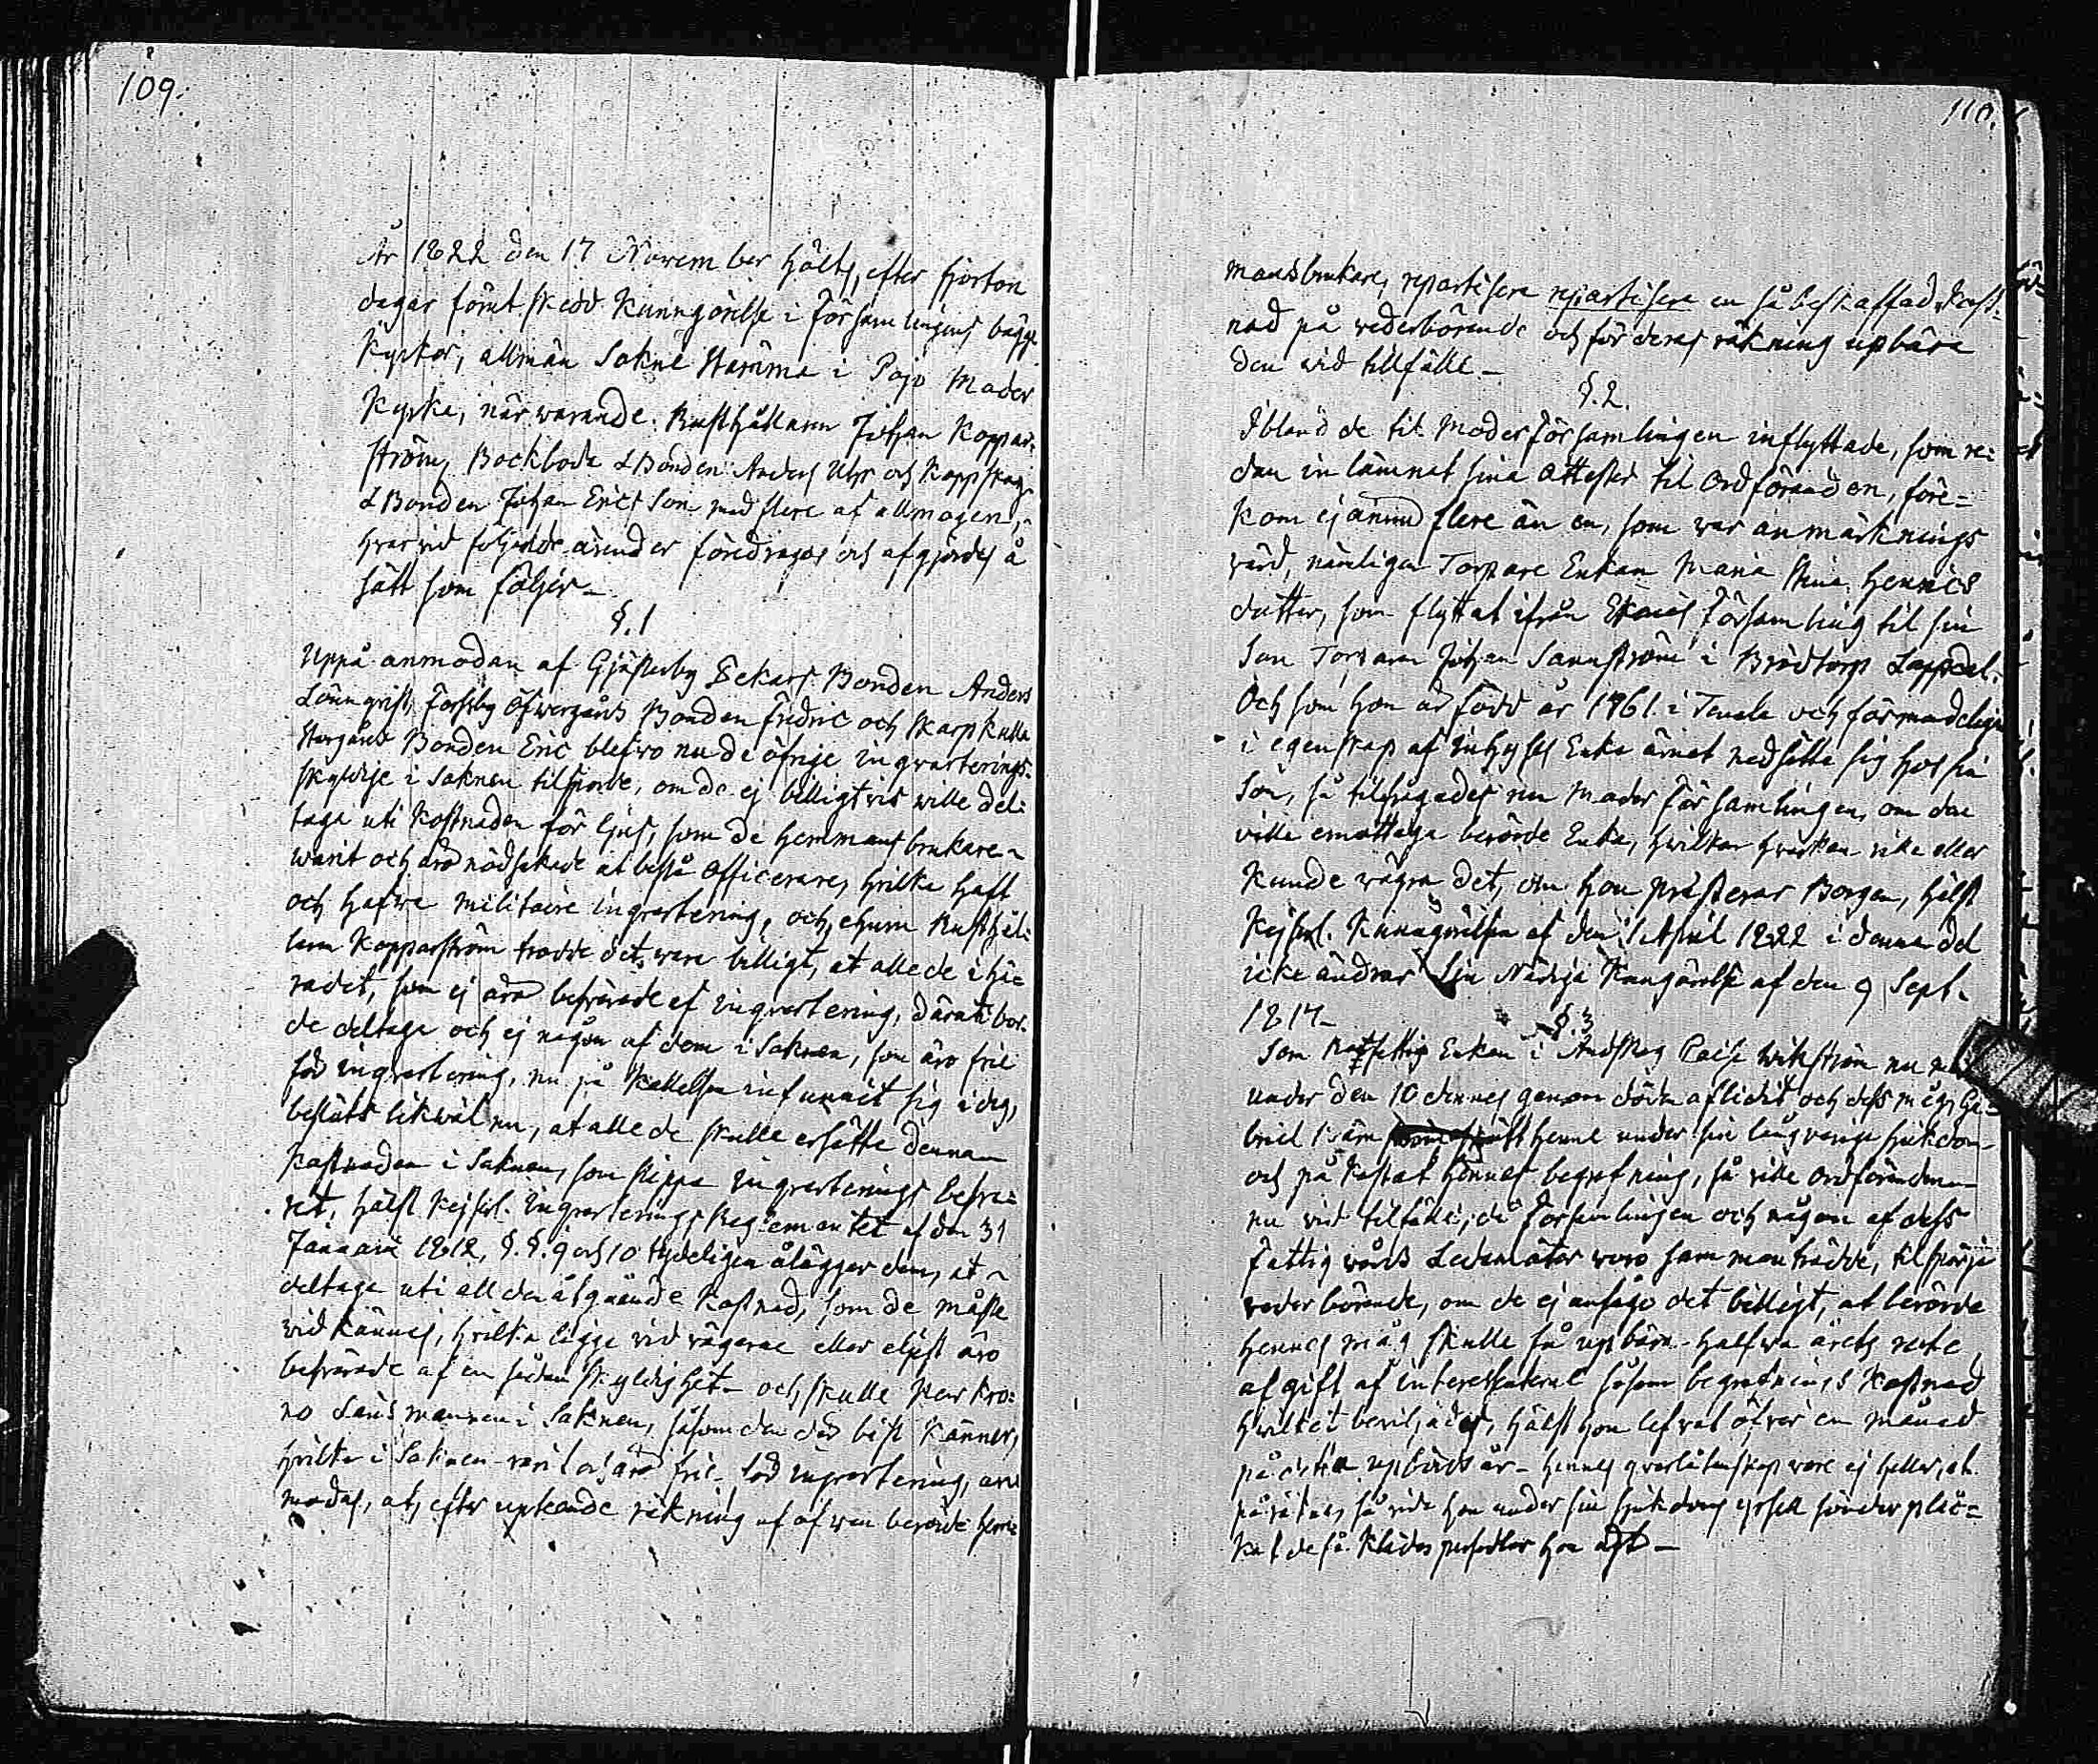 109.
År 1822 den 17 November hölts, efter fjorton
dagar förut skedd Kunngörelse i Församlingens bägge
Kyrkor, allmän Sokne Stämma i Pojo Moder
Kyrka, när warande Rusthållaren Johan Koppar-
ström, Bockboda L Bonden Anders Uhr och Koppskog
L Bonden Johan Ericsson med flere af allmogen,
hvarvid följande ärender föredrogos och afgjordes å
sätt som följer-
§.1
Uppå anmodan af Gjästerby Eckars Bonden Anders
Lönnqvist, Forsby Öfwergårds Bonden Fredric och Skarpkulla
Storgårds Bonden Eric blefwo nu de öfrige inqvarterings-
skyldige i Soknen tilsporde, om de ej billigtvis wille del-
taga uti Kostnaden för ljus, som de Hemmansbrukare
warit och äro nödsakade at bestå Officerare, hvilka haft
och hafwa militaire inqvartering, och, ehuru Rusthål-
laren Kopparström trodde det wara billigt, at alla de i Hä-
radet, som ej äro besvärade af inqvartering, däruti bor-
de deltaga och ej någon af dem i Soknen, som äro frie
från inqvartering, nu på Kallelsen infunnit sig i dag,
beslöts likwäl nu, at alla de skulle ersätta denna
Kostnaden i Soknen, som slippa inqvarterings besvä-
ret, hälst Kejserl. Inqvarterings Reglementet af den 31
Januarii 1812, §.§. 9 och 10 tydeligen ålägger dem, at
deltaga uti all den åtgående Kostnad, som de måste
widkännes, hvilka ligga vid vägarne eller eljest äro
besvärade af en sådan skyldighet - och skulle Herr Kro-
no Länsmannen i Soknen, såsom den där bäst känner,
hvilka i Soknen varit och äro frie från inqvartering, an-
modas, at, efter uptagande räkning af ofwan berörde Hem-
110.
mansbrukare, repartisera repartisera en så beskaffad Kost-
nad på wederbörande och för deras räkning upbära
den vid tillfälle-
§.2.
Ibland de til Moderförsamlingen inflyttade, som re-
dan inlämnat sina Attester til Ordföranden, före-
kom ej ännu flere än en, som war anmärknings
värd, nämligen Torpare Enkan Maria Stina Henrics
dotter, som flyttat ifrån Ekenäs Församling til sin
Son Torparen Johan Sannström i Brödtorp Lappdal.
Och som hon är född år 1761 i Tenala och förmodeligen
i egenskap af Inhyses Enka ärnat nedsätta sig hos sin
Son, så tilfrågades nu Moder Församlingen, om den
ville emottaga berörde Enka, hwilken hvarken vile eller
kunde vägra det, om hon præsterar Borgen, hälst
Kejserl. Kunngörelsen af den 1 April 1822 i denna del
icke ändrar Sin Nådiga Kungörelse af den 9 Sept.
1817-
§.3
Som Rotfattig Enkan i Andskog Caisa Wikström nu
under den 10 dennes genom döden aflidit och dess måg Ga-
briel skött henne under sin långvariga sjukdom
och påkostat hennes begrafning, så ville Ordföranden
nu vid tilfälle, då Församlingen och någon af dess
Fattigvårds Ledamöter woro samman trädde, tilspörja
vederbörande, om de ej ansågo det billigt, at berörde
hennes måg skulle få upbära halfwa årets rote
afgift af interessenterne såsom begrafnings Kostnad
hwilket beviljades, hälst hon lefvat öfver en månad
på detta upbörds år - hennes qvarlåtenskap vore ej heller, at
påräkna, så vida hon under sin sjukdom sönder plåc-
kat de få Klädes persedlar hon ägt-